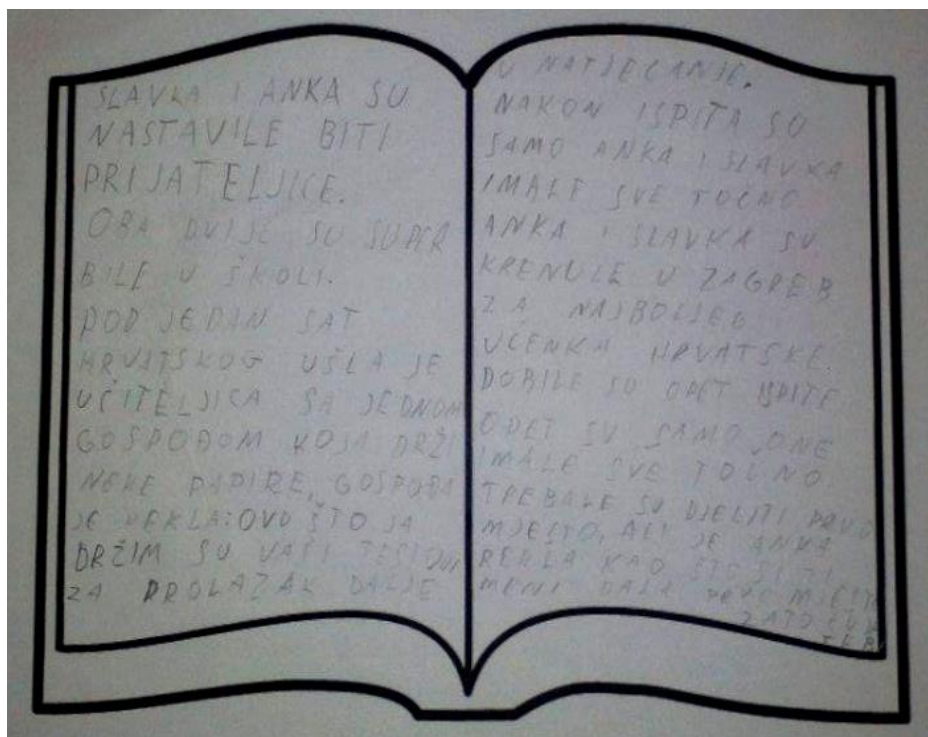 SLAVKA I ANKA SU
NASTAVILE BITI
PRIJATELJICE.
OBA DVIJE SU SUPER
BILE U ŠKOLI.
POD JEDAN SAT
HRVATSKOG UŠLA JE
UČITELJICA SA JEDNOM
GOSPOĐOM KOJA DRŽI
NEKE PAPIRE, GOSPOĐA
JE REKLA: OVO ŠTO JA
DRŽIM SU VAŠI TESTOVI
ZA PROLAZAK DALJE
U NATJECANJE.
NAKON ISPITA SU
SAMO ANKA I SLAVKA
IMALE SVE TOČNO.
ANKA I SLAVKA SU
KRENULE U ZAGREB
ZA NAJBOLJEG
UČENIKA HRVATSKE.
DOBILE SU OPET ISPITE
OPET SU SAMO ONE
IMALE SVE TOČNO.
TREBALE SU DJELITI PRVO
MJESTO, ALI JE ANKA
REKLA KAO ŠTO SI TI
MENI DALA PRVO MJESTO
ZATO ĆU JA
TEBI